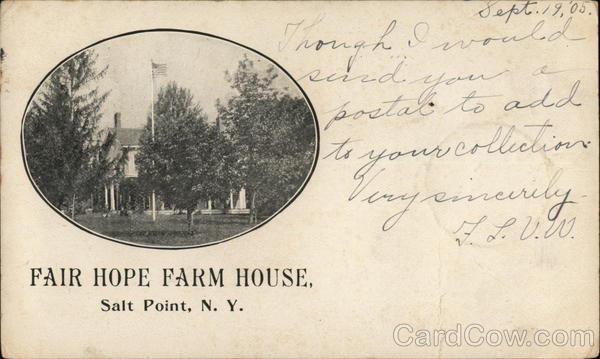 Sept. 19, '05.
Though I would
send you a
postal to add
to your collection.
Very sincerely
F. L. V. W.
FAIR HOPE FARM HOUSE,
Salt Point, N. Y.
CardCow.com